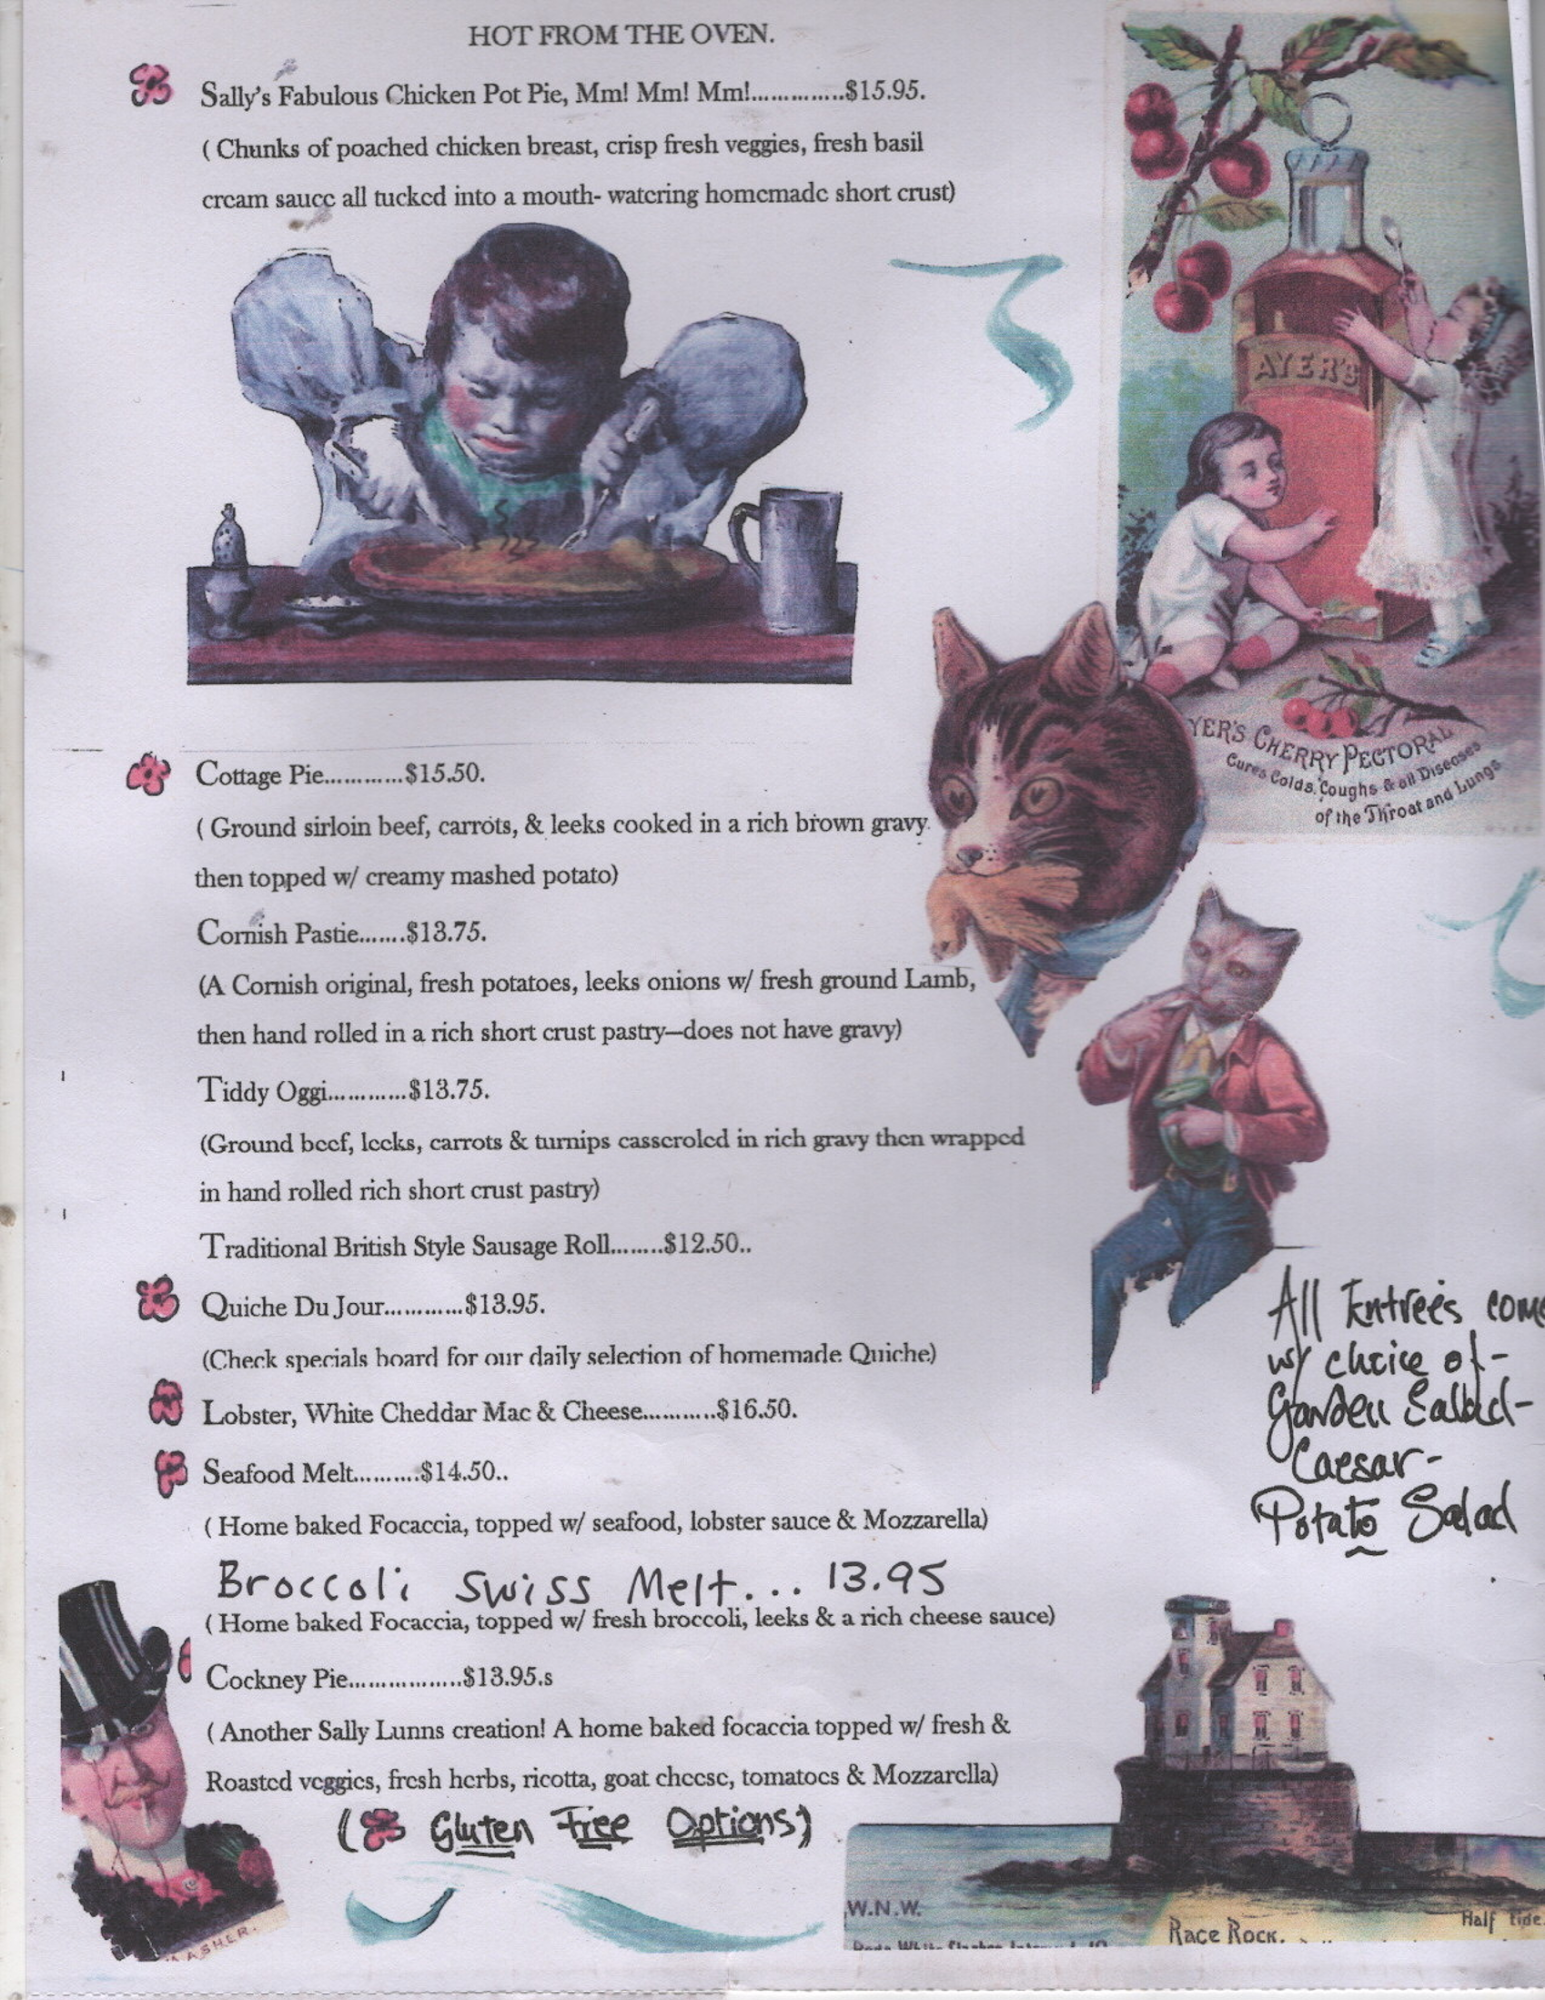 HOT FROM THE OVEN.
Sally's Fabulous Chicken Pot Pie, Mm! Mm! Mm!..............$15.95.
( Chunks of poached chicken breast, crisp fresh veggies, fresh basil
cream sauce all tucked into a mouth- watering homemade short crust)
AYER'S
YER'S CHERRY PECTORAL
Cures Colds, Coughs & all Diseases
of the Throat and Lungs
Cottage Pie............$15.50.
( Ground sirloin beef, carrots, & leeks cooked in a rich brown gravy
then topped w/ creamy mashed potato)
Cornish Pastie.......$13.75.
(A Cornish original, fresh potatoes, leeks onions w/ fresh ground Lamb,
then hand rolled in a rich short crust pastry—does not have gravy)
Tiddy Oggi............$13.75.
(Ground beef, leeks, carrots & turnips casseroled in rich gravy then wrapped
in hand rolled rich short crust pastry)
Traditional British Style Sausage Roll........$12.50..
Quiche Du Jour............$13.95.
(Check specials board for our daily selection of homemade Quiche)
Lobster, White Cheddar Mac & Cheese...........$16.50.
Seafood Melt..........$14.50..
( Home baked Focaccia, topped w/ seafood, lobster sauce & Mozzarella)
Broccoli Swiss Melt... 13.95
( Home baked Focaccia, topped w/ fresh broccoli, leeks & a rich cheese sauce)
Cockney Pie.................$13.95.s
( Another Sally Lunns creation! A home baked focaccia topped w/ fresh &
Roasted veggies, fresh herbs, ricotta, goat cheese, tomatoes & Mozzarella)
( Gluten Free Options)
All Entrées come
w/ choice of-
Garden Salad-
Caesar-
Potato Salad
MASHER.
W.N.W.
Race Rock.
Half tide.